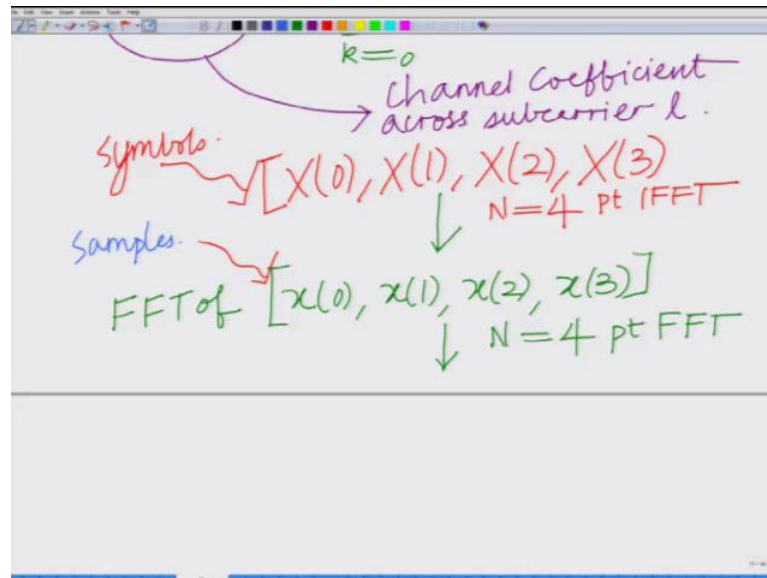 k=0
Channel Coefficient
across subcarrier l.
symbols.
[X(0), X(1), X(2), X(3)
N=4 pt IFFT
Samples.
FFT of [x(0), x(1), x(2), x(3)]
N=4 pt FFT